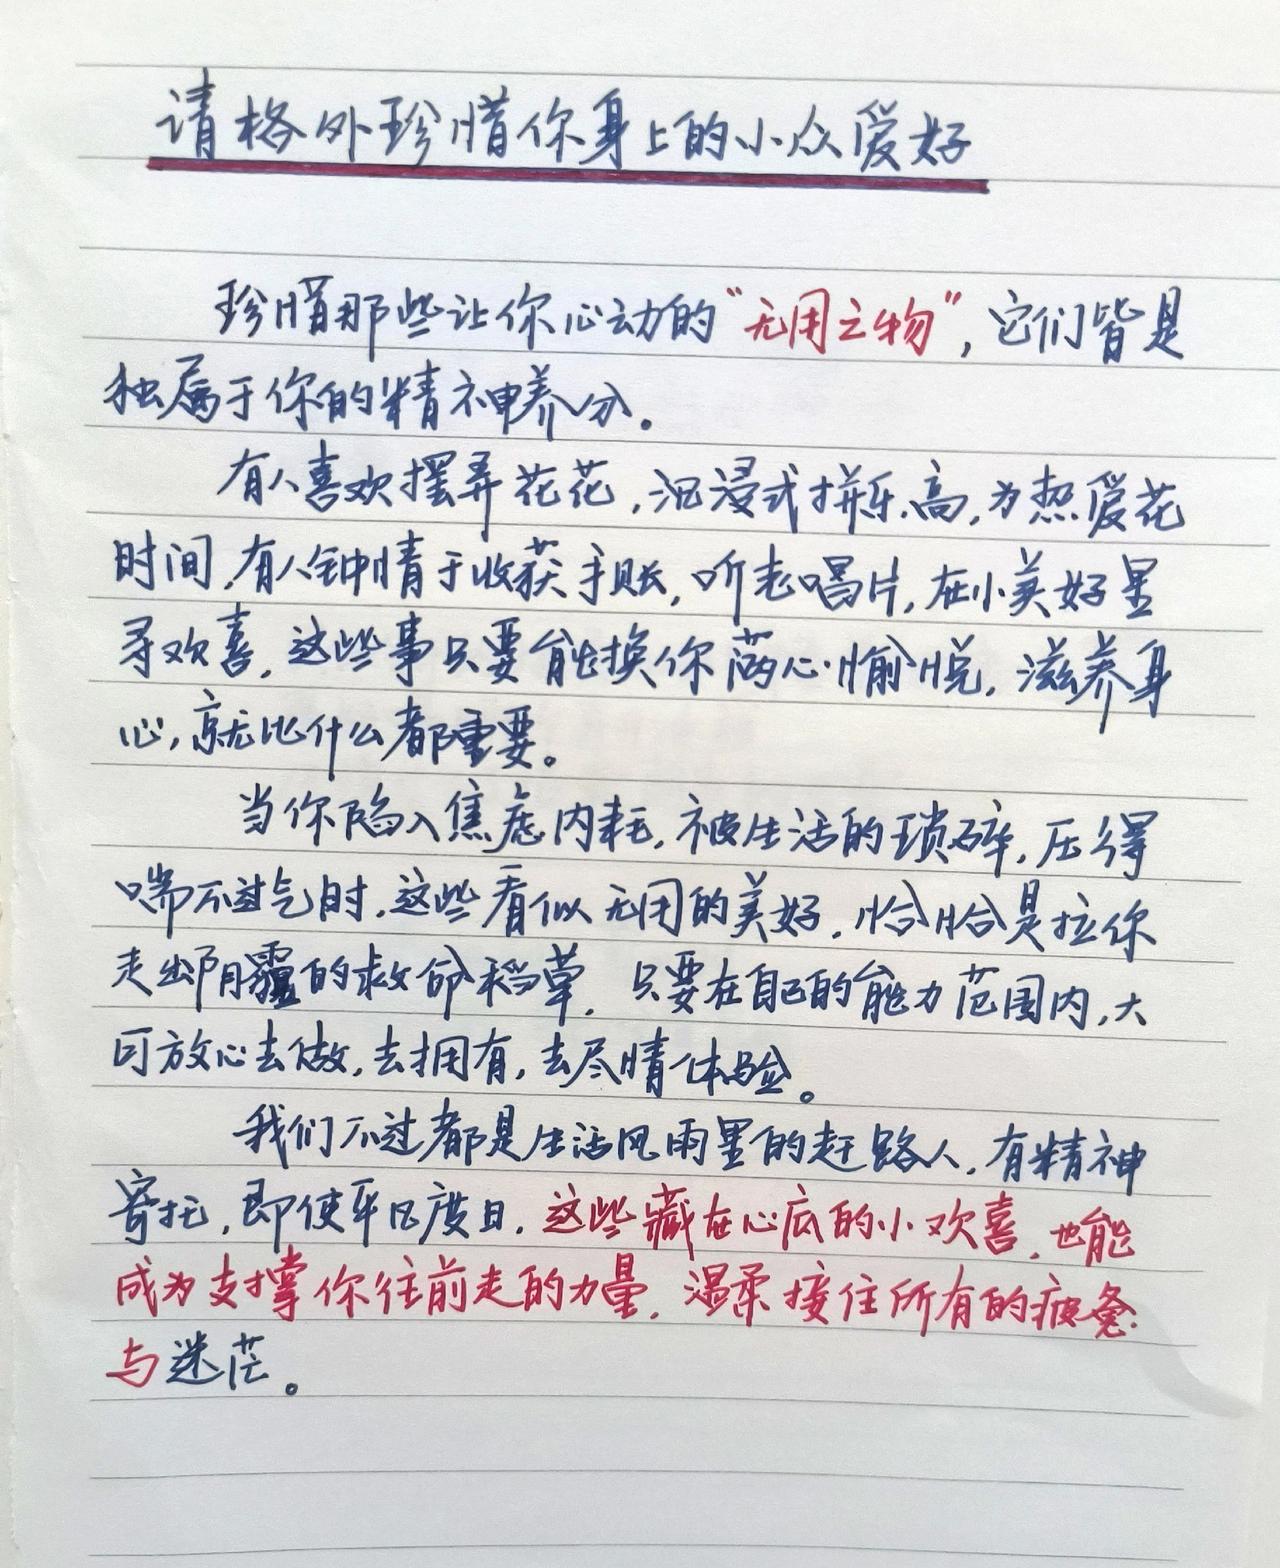 请格外珍惜你身上的小众爱好
珍惜那些让你心动的“无用之物”，它们皆是
独属于你的精神养分。
有人喜欢摆弄花花，沉浸式拼乐高，为热爱花
时间，有人钟情于收获手账，听老唱片，在小美好里
寻欢喜，这些事只要能换你满心愉悦，滋养身
心，就比什么都重要。
当你陷入焦虑内耗，被生活的琐碎，压得
喘不过气时，这些看似无用的美好，恰恰是拉你
走出阴霾的救命稻草，只要在自己的能力范围内，大
可放心去做，去拥有，去尽情体验。
我们不过都是生活风雨里的赶路人，有精神
寄托，即使平凡度日，这些藏在心底的小欢喜，也能
成为支撑你往前走的力量，温柔接住所有的疲惫
与迷茫。